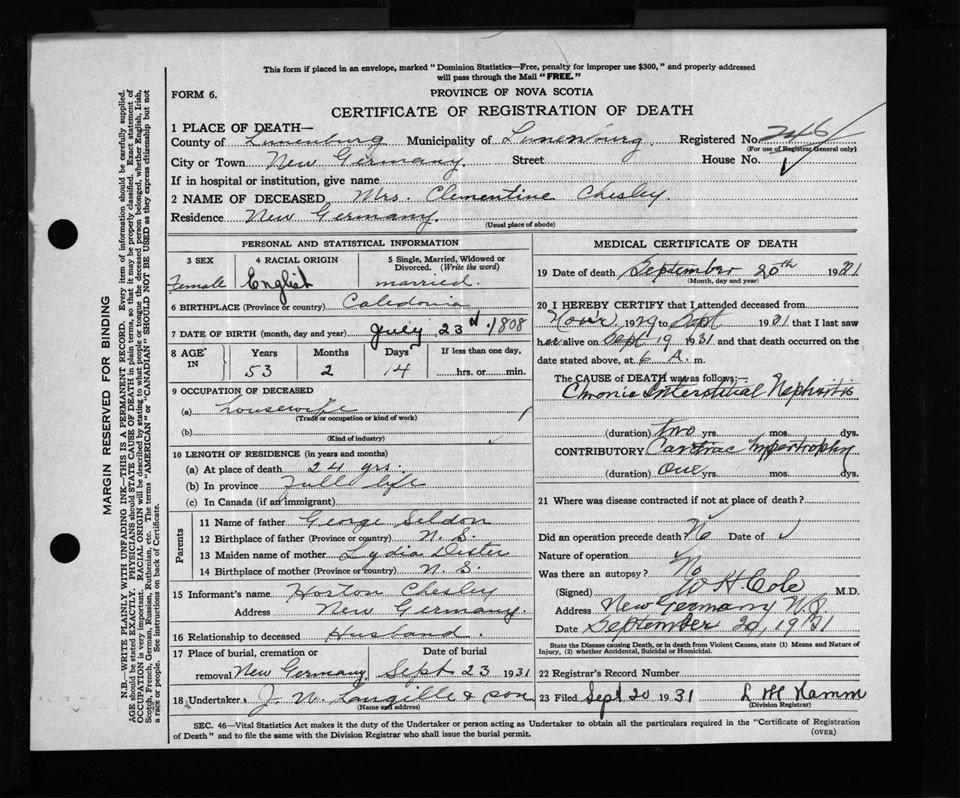 This form if placed in an envelope, marked "Dominion Statistics—Free, penalty for improper use $300," and properly addressed
will pass through the Mail "FREE."
FORM 6.
PROVINCE OF NOVA SCOTIA
CERTIFICATE OF REGISTRATION OF DEATH
1 PLACE OF DEATH—
County of Lunenburg Municipality of Lunenburg Registered No. 246
(For use of Registrar General only)
City or Town New Germany Street House No.
If in hospital or institution, give name
2 NAME OF DECEASED Mrs. Clementine Chesley.
Residence New Germany.
(Usual place of abode)
PERSONAL AND STATISTICAL INFORMATION
3 SEX
Female
4 RACIAL ORIGIN
English
5 Single, Married, Widowed or
Divorced. (Write the word)
married.
6 BIRTHPLACE (Province or Country) Caledonia
7 DATE OF BIRTH (month, day and year) July 23d 1808
8 AGE IN
Years Months Days If less than one day,
53 2 14 hrs. or min.
9 OCCUPATION OF DECEASED
(a) housewife
(Trade or occupation or kind of work)
(b)
(Kind of industry)
10 LENGTH OF RESIDENCE (in years and months)
(a) At place of death 24 yrs.
(b) In province Full life
(c) In Canada (if an immigrant)
Parents
11 Name of father George Seldon
12 Birthplace of father (Province or country) N. S.
13 Maiden name of mother Lydia
14 Birthplace of mother (Province or country) N. S.
15 Informant's name Horton Chesley
Address New Germany.
16 Relationship to deceased Husband.
17 Place of burial, cremation or Date of burial
removal New Germany Sept 23 1931
18 Undertaker J. W. Langille & son
(Name and address)
MEDICAL CERTIFICATE OF DEATH
19 Date of death September 20th 1931
(Month, day and year)
20 I HEREBY CERTIFY that I attended deceased from
Nov'r 1929 to Sept 1931 that I last saw
her alive on Sept 19 1931 and that death occurred on the
date stated above, at 6 A. m.
The CAUSE OF DEATH was as follows:—
Chronic Interstitial Nephritis
(duration) two yrs. mos. dys.
CONTRIBUTORY Cardiac Hypertrophy
(duration) one yrs. mos. dys.
21 Where was disease contracted if not at place of death?
Did an operation precede death? No Date of
Nature of operation
Was there an autopsy? No
(Signed) W H Cole M.D.
Address New Germany N.S.
Date September 20, 1931
State the Disease causing Death, or in death from Violent Causes, state (1) Means and Nature of
Injury, (2) whether Accidental, Suicidal or Homicidal.
22 Registrar's Record Number
23 Filed Sept 20 1931 L H Hamm
(Division Registrar)
SEC. 46—Vital Statistics Act makes it the duty of the Undertaker or person acting as Undertaker to obtain all the particulars required in the "Certificate of Registration
of Death" and to file the same with the Division Registrar who shall issue the burial permit. (OVER)
MARGIN RESERVED FOR BINDING
N.B.—WRITE PLAINLY WITH UNFADING INK—THIS IS A PERMANENT RECORD. Every item of information should be carefully supplied.
AGE should be stated EXACTLY. PHYSICIANS should STATE CAUSE OF DEATH in plain terms, so that it may be properly classified. Exact statement of
OCCUPATION is very important. RACIAL ORIGIN will be described by stating to what people or tongue the deceased person belonged, whether English, Irish,
Scotch, French, German, Russian, Ruthenian, etc. The terms "AMERICAN" or "CANADIAN" SHOULD NOT BE USED as they express citizenship but not
a race or people. See instructions on back of Certificate.